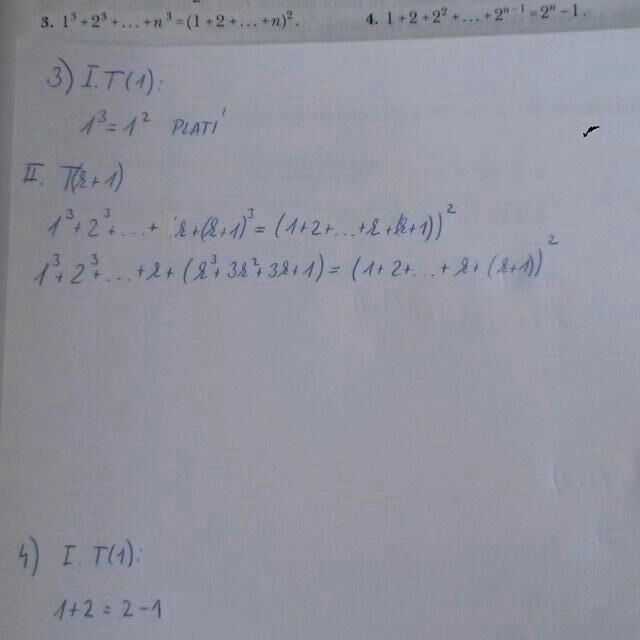 3. 1³ + 2³ + … + n³ = (1 + 2 + … + n)². 4. 1 + 2 + 2² + … + 2ⁿ⁻¹ = 2ⁿ − 1.
3) I. T(1):
1³ = 1² PLATÍ
II. T(k+1)
1³ + 2³ + … + k + (k+1)³ = (1 + 2 + … + k + (k+1))²
1³ + 2³ + … + k + (k³ + 3k² + 3k + 1) = (1 + 2 + … + k + (k+1))²
4) I. T(1):
1 + 2 = 2 − 1